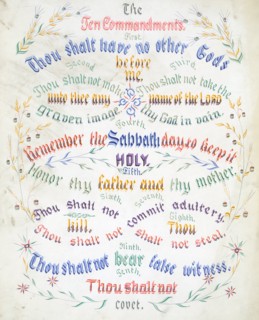 The
Ten Commandments.
First.
Thou shalt have no other Gods
before
me.
Second
Thou shalt not make
unto thee any
graven image
Third.
Thou shalt not take the
name of the LORD
thy God in vain.
Fourth.
Remember the Sabbath day, to keep it
HOLY.
Fifth.
Honor thy father and thy mother.
Sixth.
Thou shalt not
kill.
Seventh.
Thou shalt not commit adultery.
Eighth.
Thou shalt not steal.
Ninth.
Thou shalt not bear false witness.
Tenth.
Thou shalt not
covet.